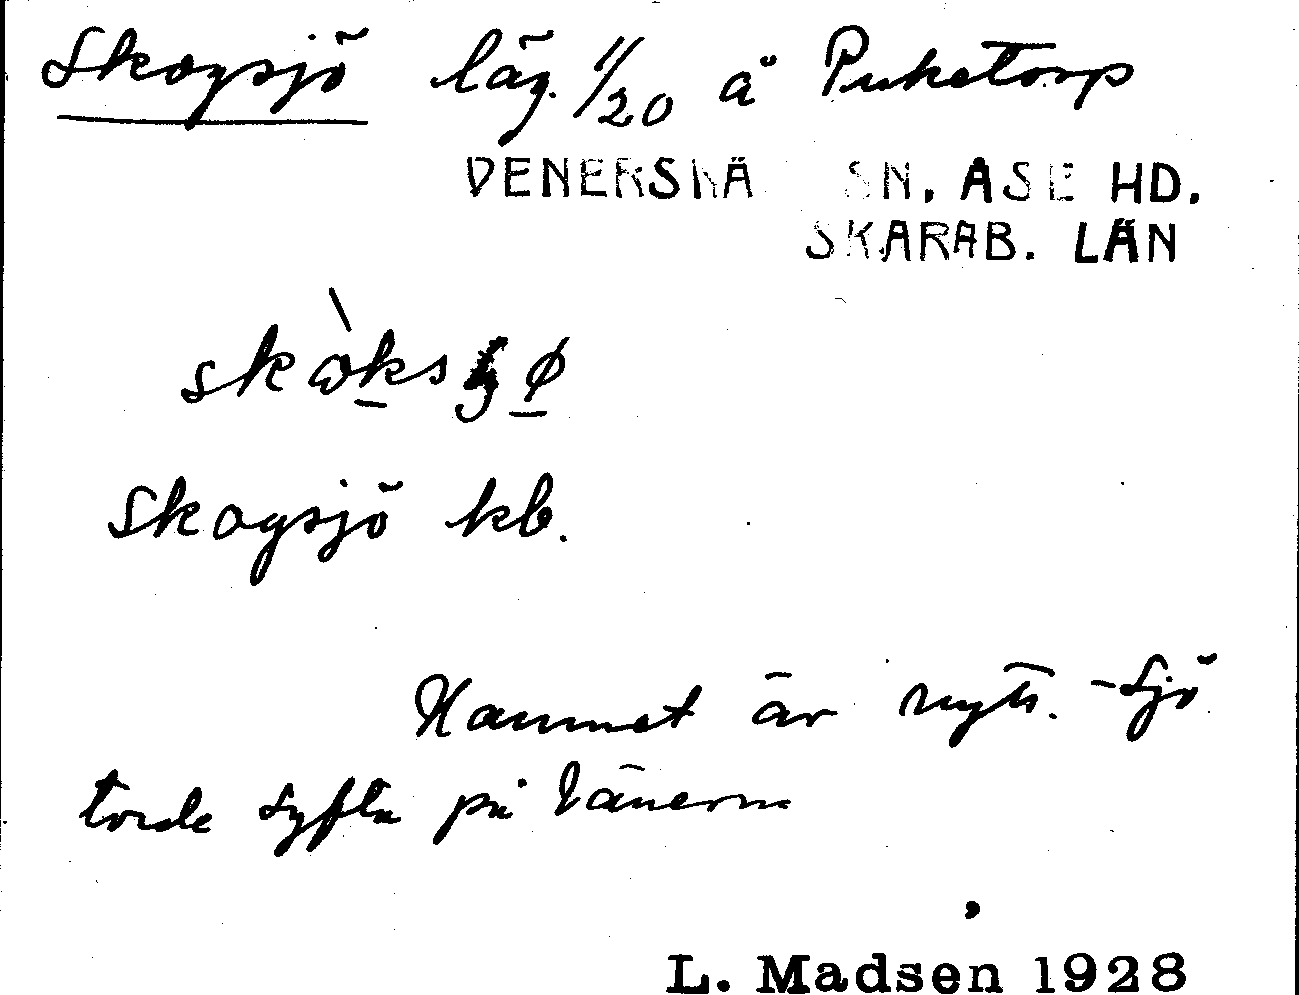 Skogsjö läg. 1/20 å Puketorp
VENERSKÄ SN. ASE HD.
SKARAB. LÄN
Skogsjö kb.
Namnet är nytt. -sjö
torde syfta på Vänern
L. Madsen 1928